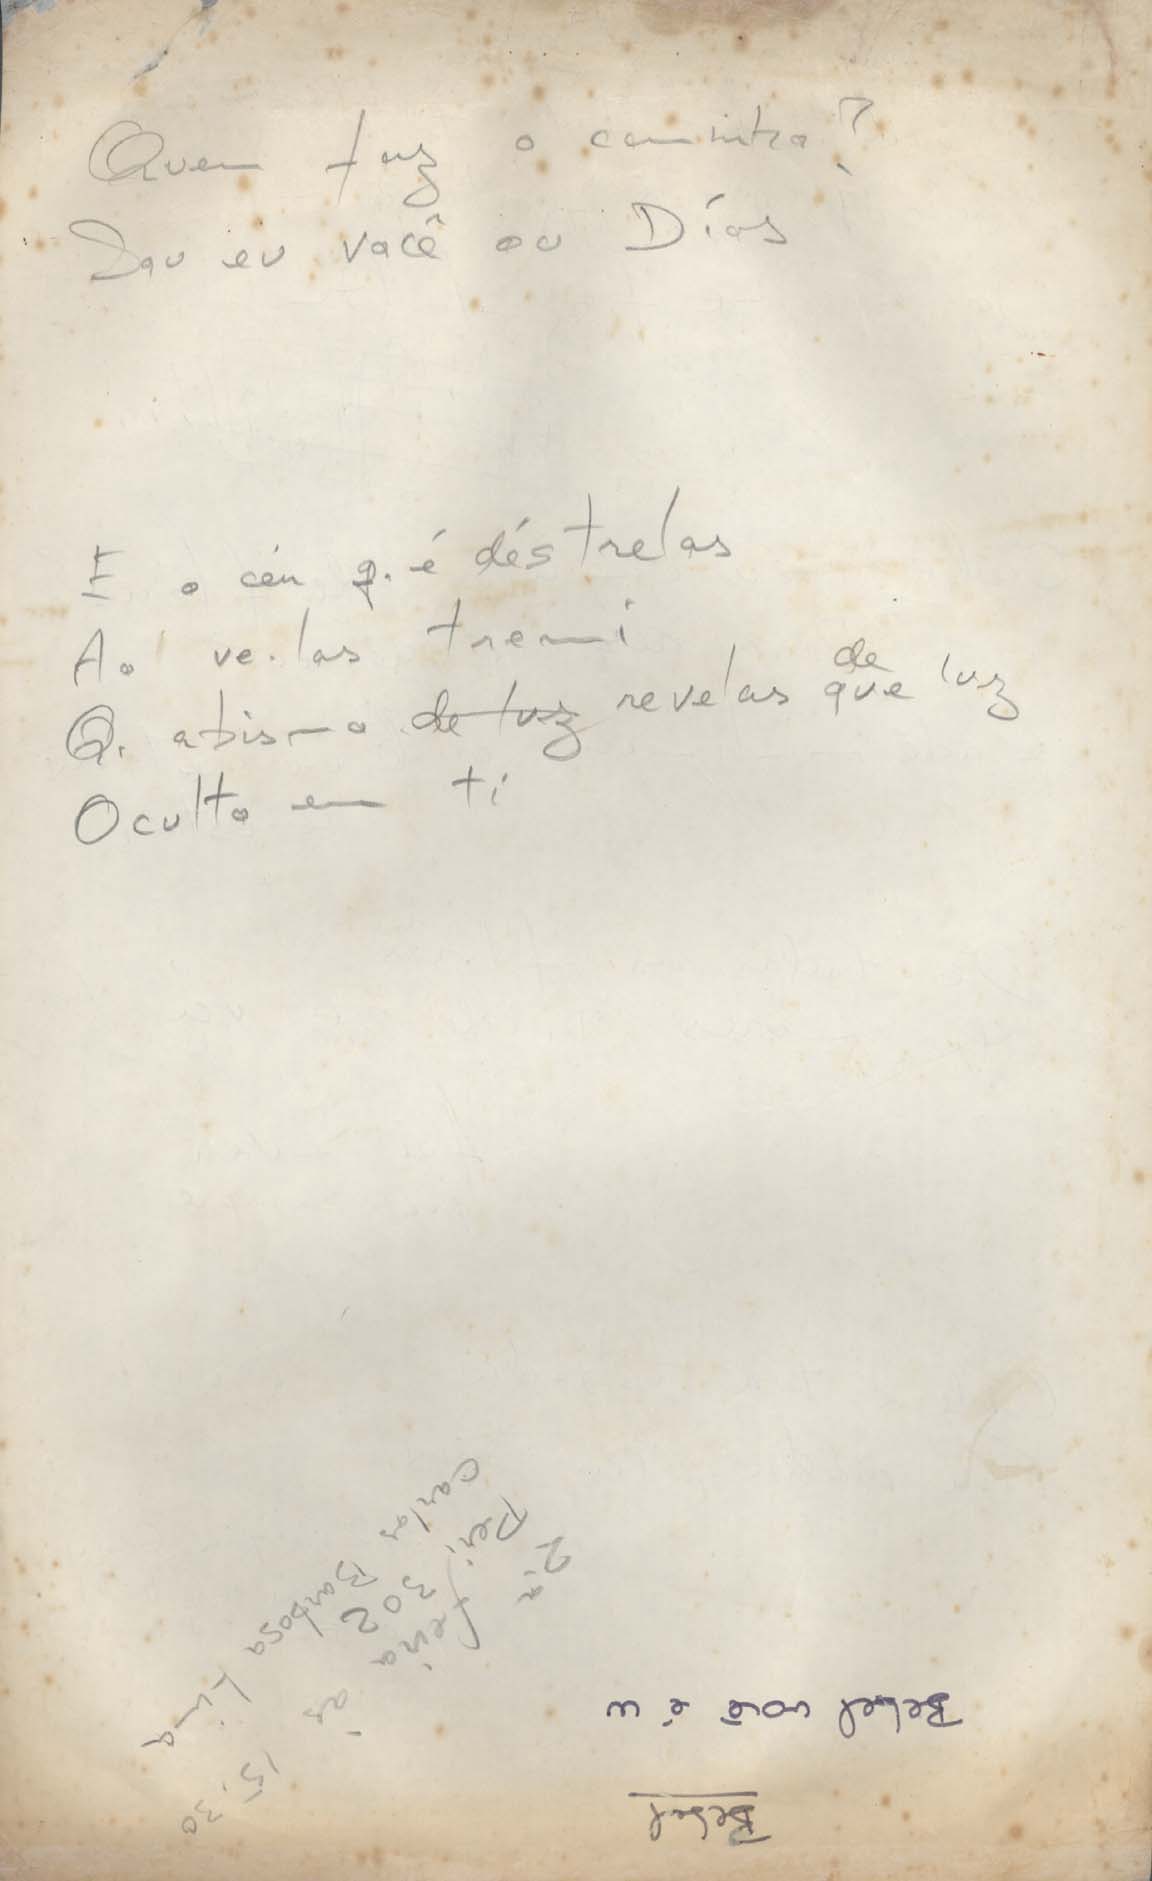 Quem faz o caminho?
Sou eu você ou Dios
E o céu q. é déstrelas
Ao ve-las tremi
Q. abismo de luz revelas de que luz
Oculto em ti
Carlos Barbosa Lima
Peri 302
2ª feira às 15:30
Bebel você é u
Bebel